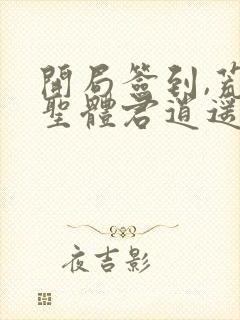 開局簽到,荒
聖體君逍遥
夜吉影